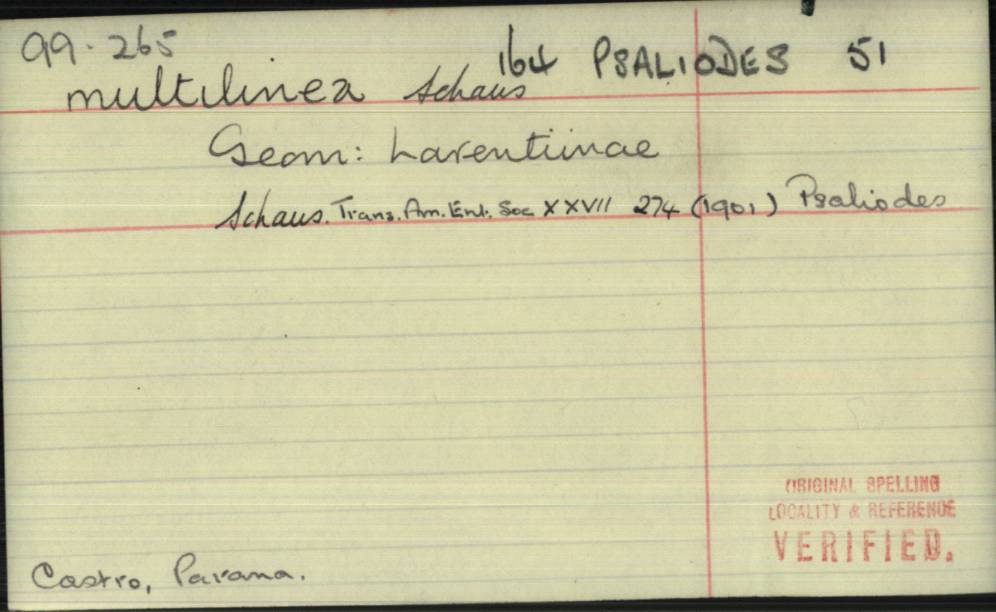 99.265
164 PSALIODES 51
multilinea Schaus
Geom: Larentiinae
Schaus. Trans. Am. Ent. Soc XXVII 274 (1901) Psaliodes
ORIGINAL SPELLING
LOCALITY & REFERENCE
VERIFIED.
Castro, Parana.